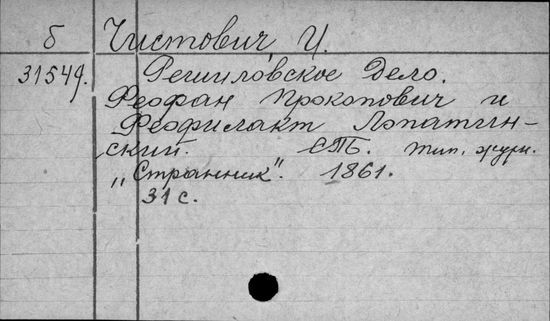 б Чистович, И.
31549. Решиловское Дело.
Феофан Прокопович и
Феофилакт Лопатин-
ский. СПБ. тип. журн.
„Странник". 1861.
31 с.